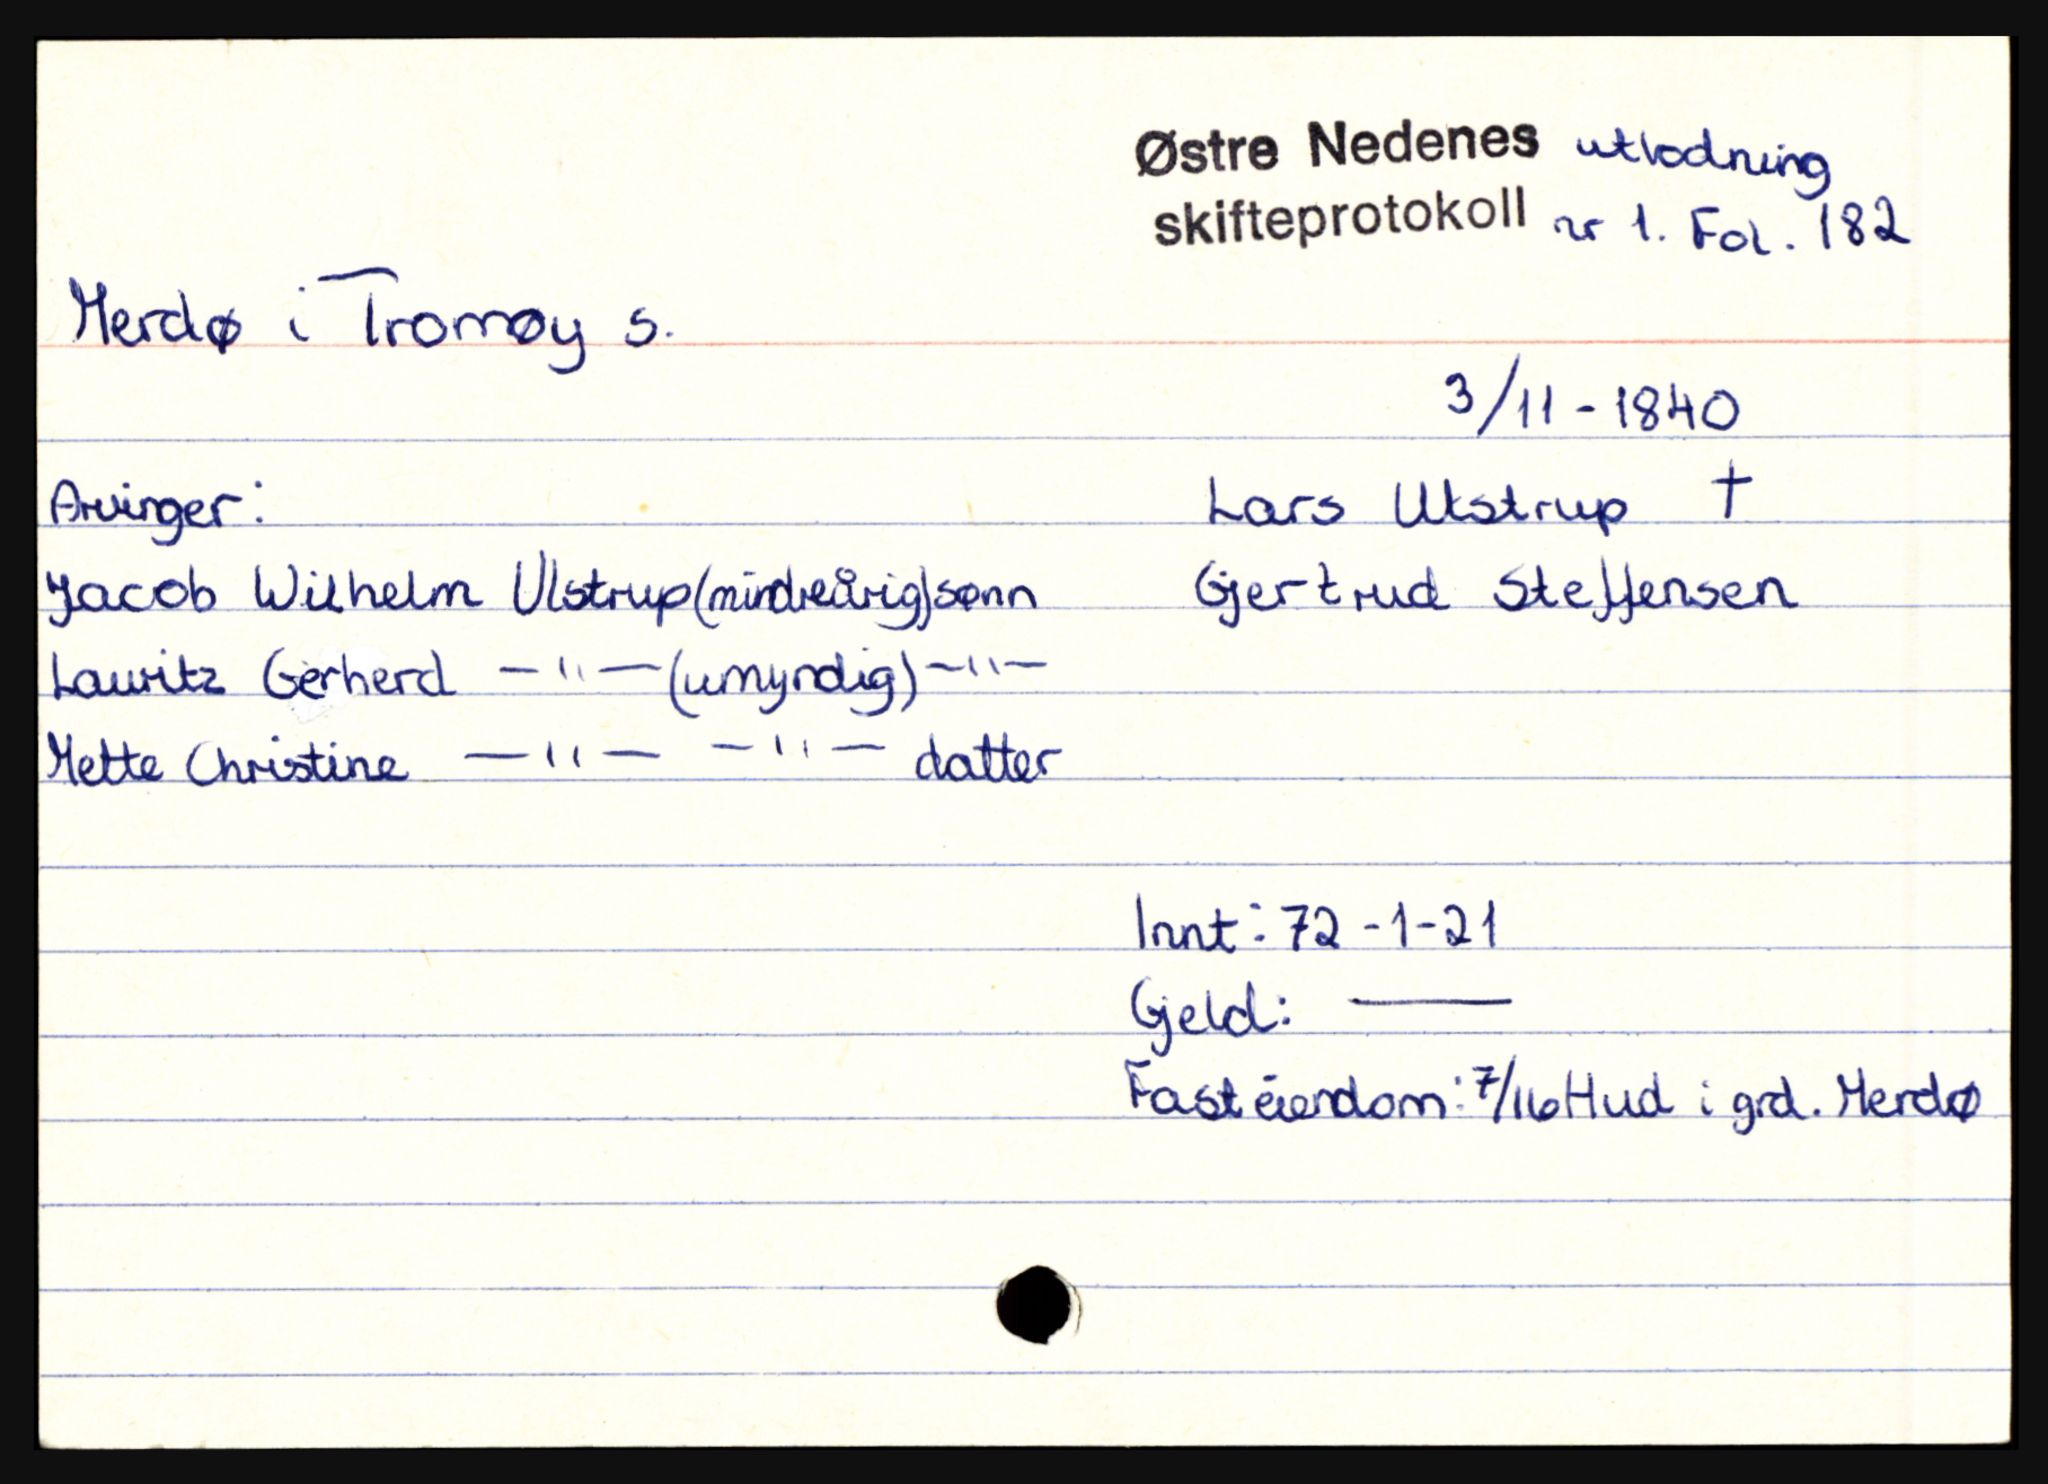 Østre Nedenes utlodning
skifteprotokoll nr 1. Fol. 182
Merdø i Tromøy s.
3/11 - 1840
Arvinger:
Lars Ulstrup †
Jacob Wilhelm Ulstrup (mindreårig) sønn
Gjertrud Steffensen
Lauritz Gerherd -"- (umyndig) -"-
Mette Christine -"- -"- datter
Innt: 72 - 1 - 21
Gjeld: ———
Fast eiendom: 7/16 Hud i grd. Merdø